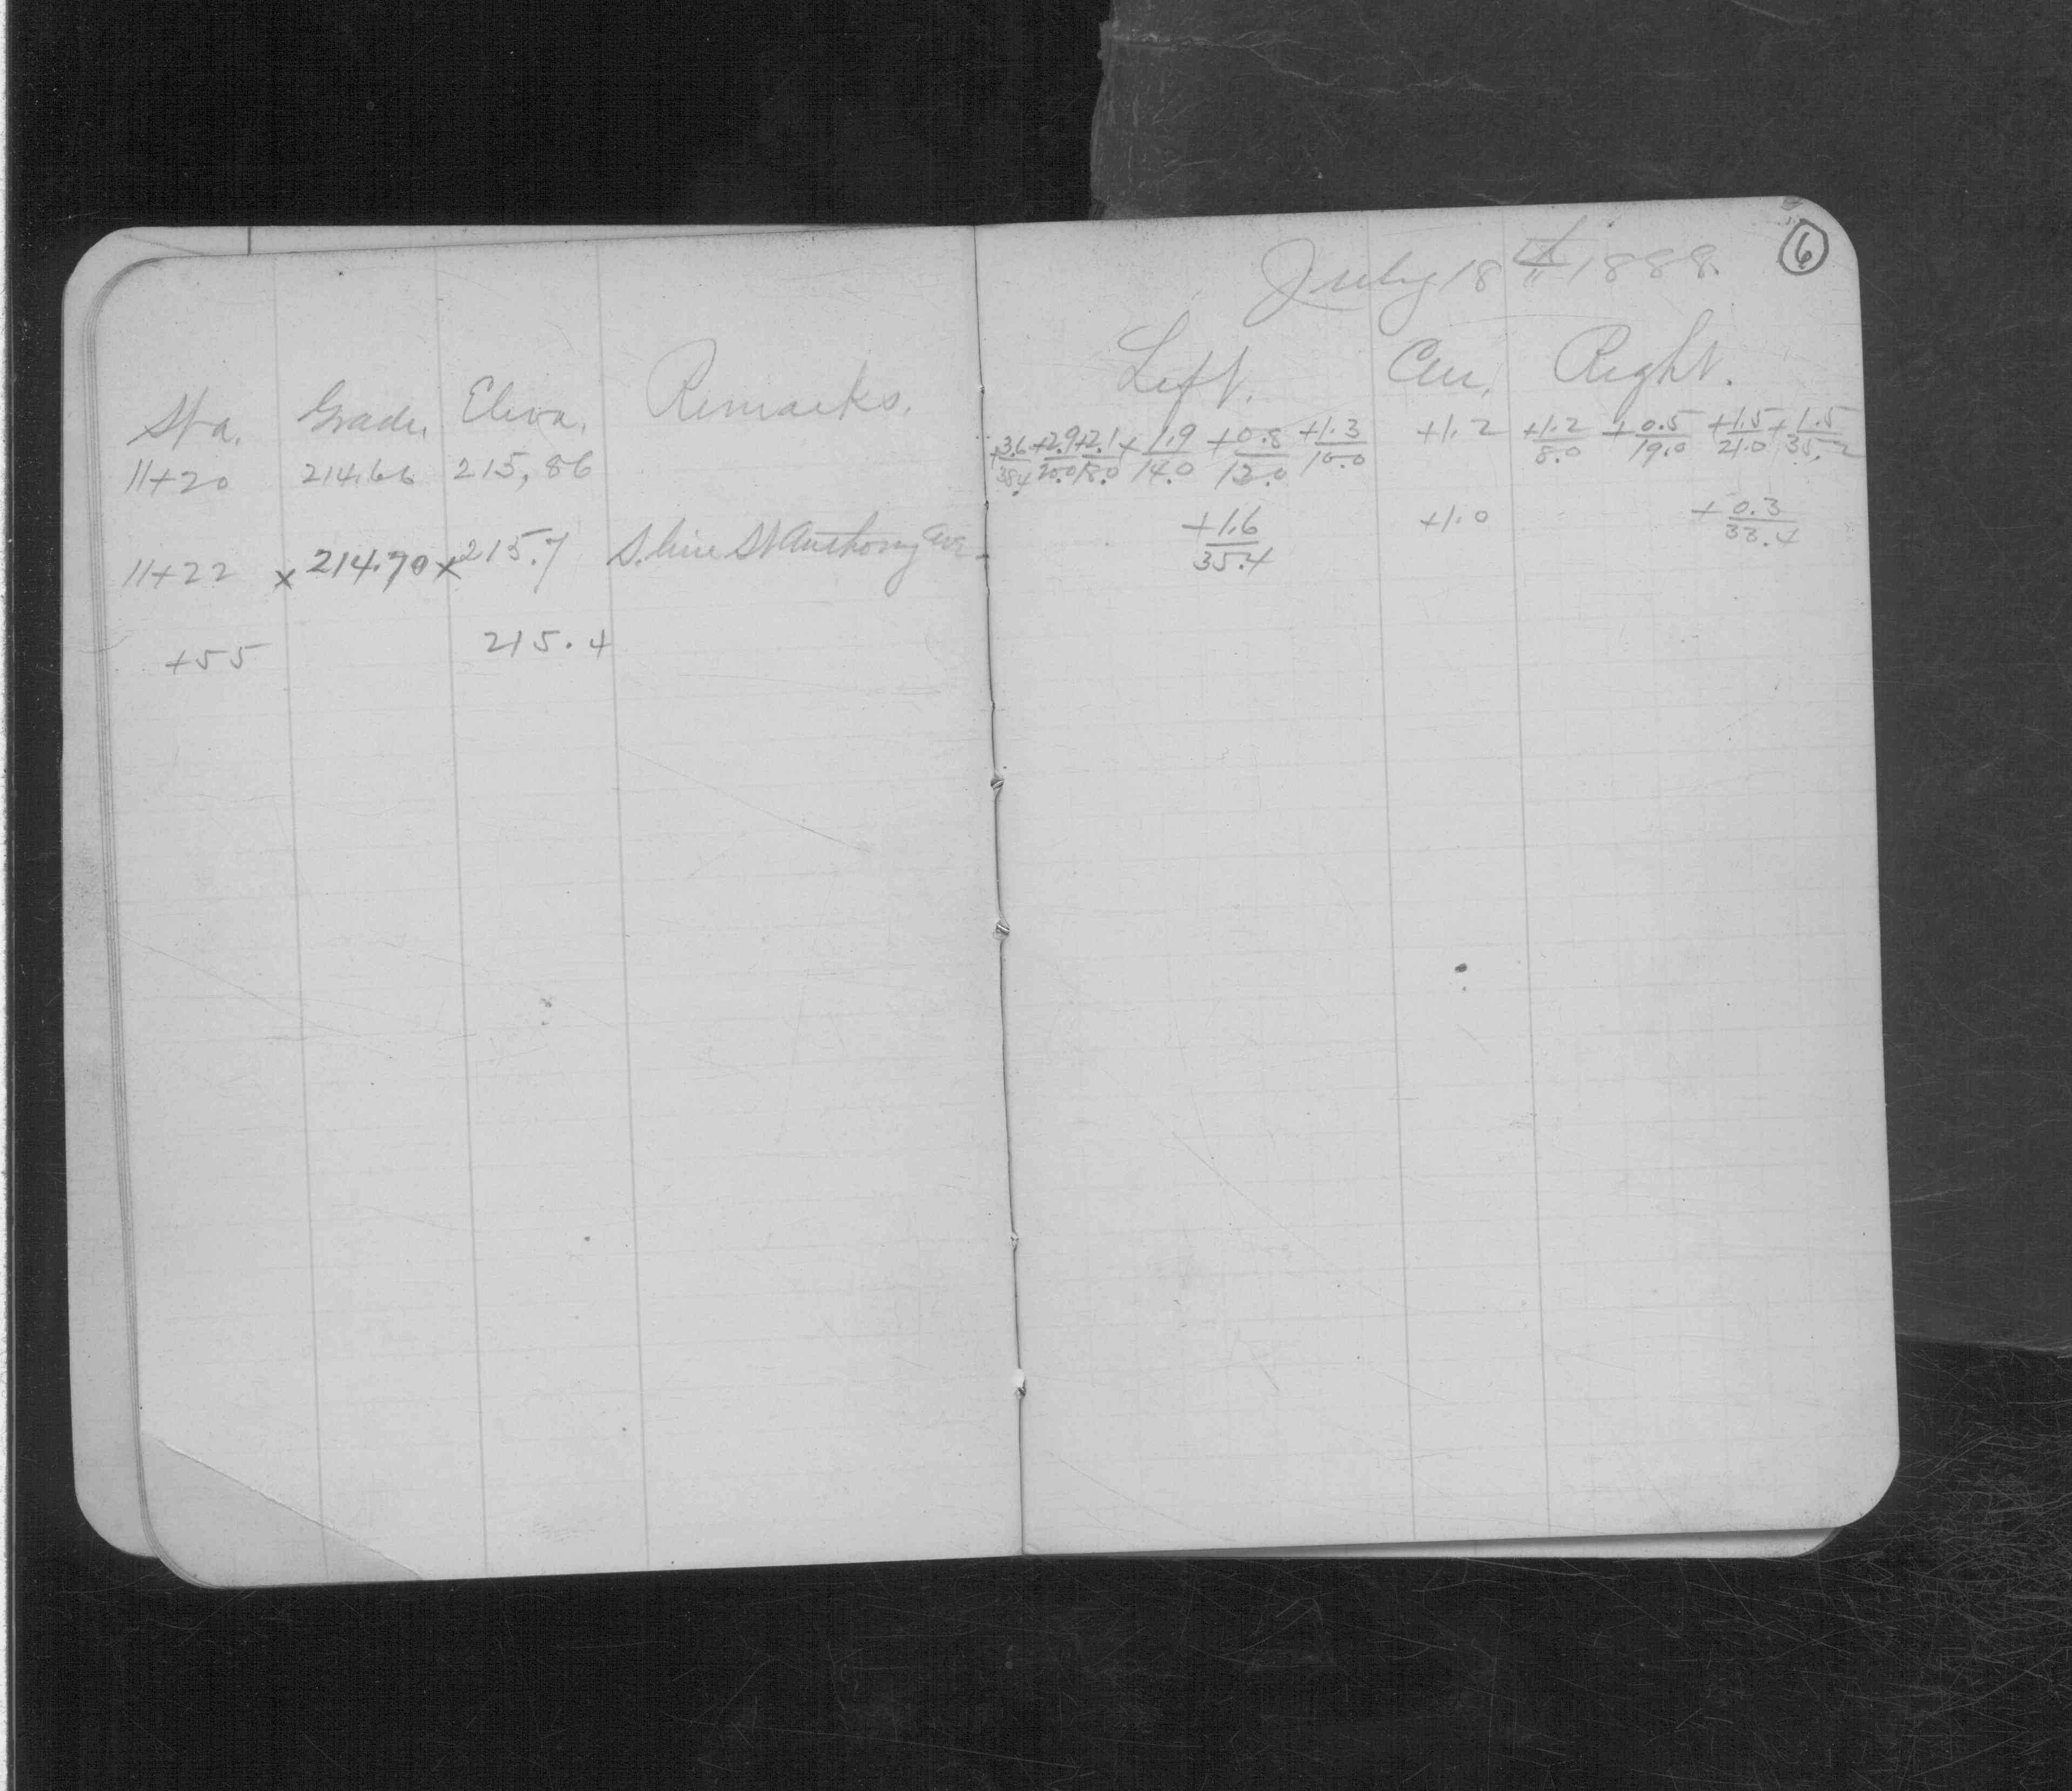 6
July 18th 1888.
Sta. Grade. Eleva. Remarks. Left. Cen. Right.
11+20 214.66 215,86 +3.6/35.4 +2.9/20.0 +2.1/18.0 +1.9/14.0 +0.8/12.0 +1.3/10.0 +1.2 +1.2/8.0 +0.5/19.0 +1.5/21.0 +1.5/35.2
11+22 x 214.70 x 215.7 S. line St Anthony Ave. +1.6/35.4 +1.0 +0.3/33.4
+55 215.4